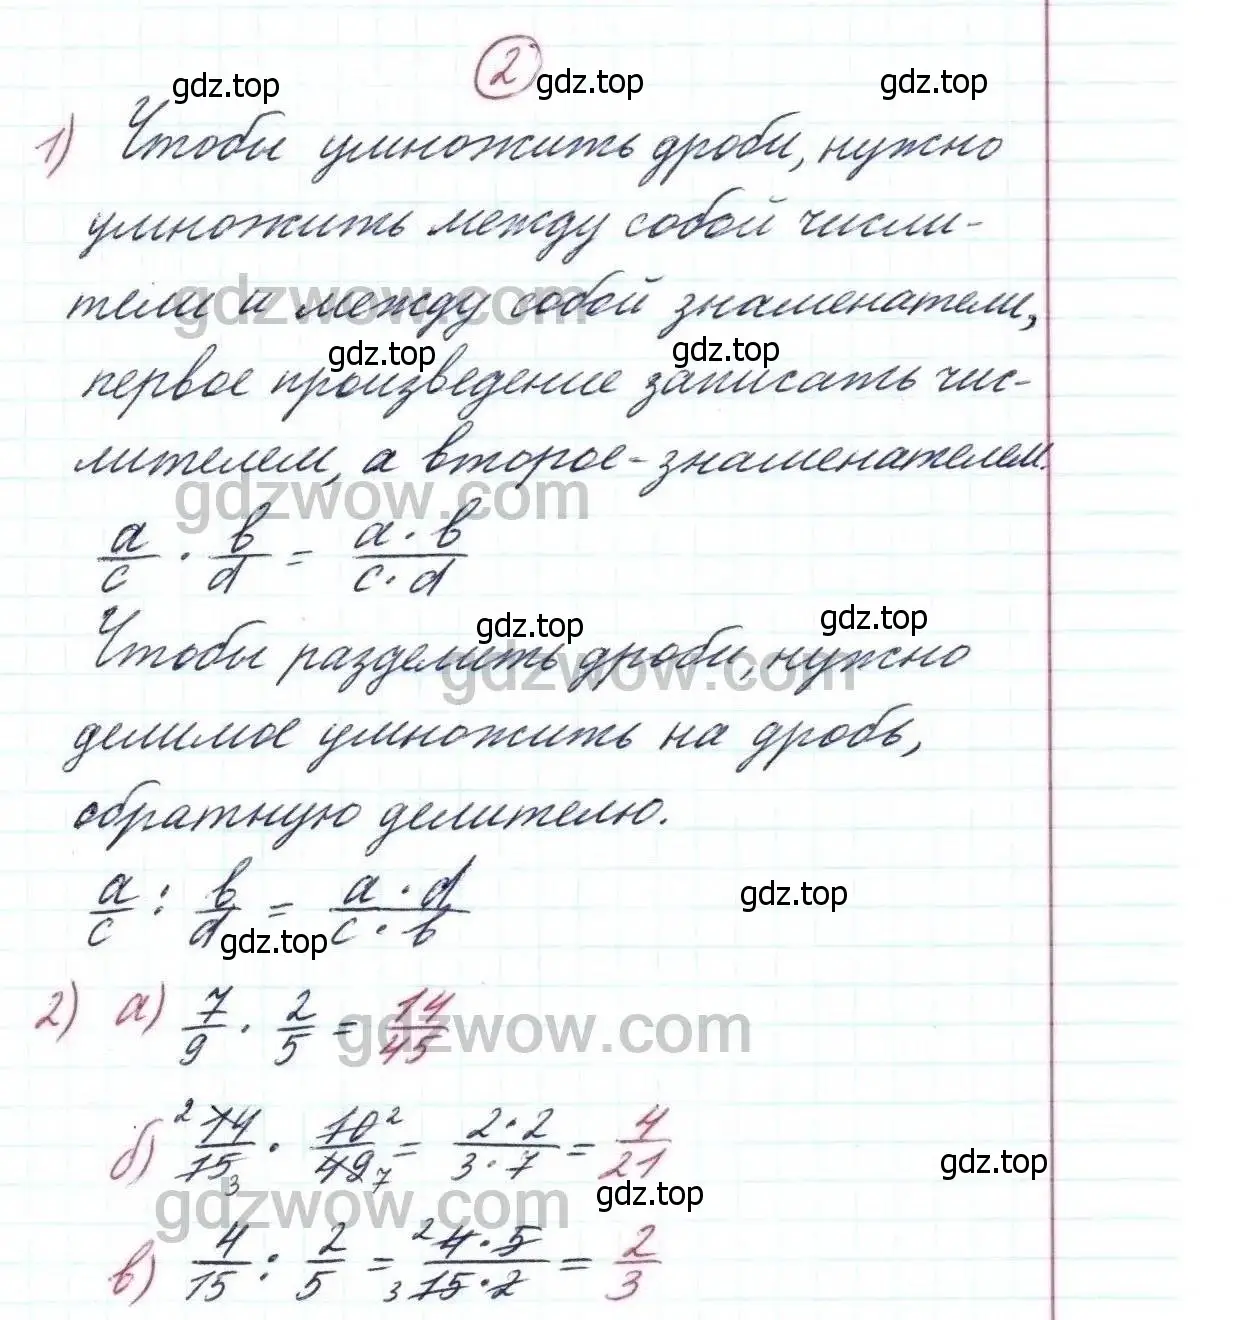 2
gdz.top gdz.top gdz.top
1) Чтобы умножить дроби, нужно
умножить между собой числи-
тели и между собой знаменатели,
gdzwow.com
gdz.top gdz.top
первое произведение записать чис-
лителем, а второе - знаменателем.
gdzwow.com
a/c · b/d = a · b / c · d
gdz.top gdz.top
Чтобы разделить дроби, нужно
gdzwow.com
делимое умножить на дробь,
обратную делителю.
a/c : b/d = a · d / c · b
gdz.top gdz.top
2) а) 7/9 · 2/5 = 14/45
gdzwow.com
б) 2 14/15 3 · 10 2/49 7 = 2 · 2 / 3 · 7 = 4/21
gdz.top gdz.top
gdzwow.com
в) 4/15 : 2/5 = 2 4 · 5 / 3 15 · 2 = 2/3